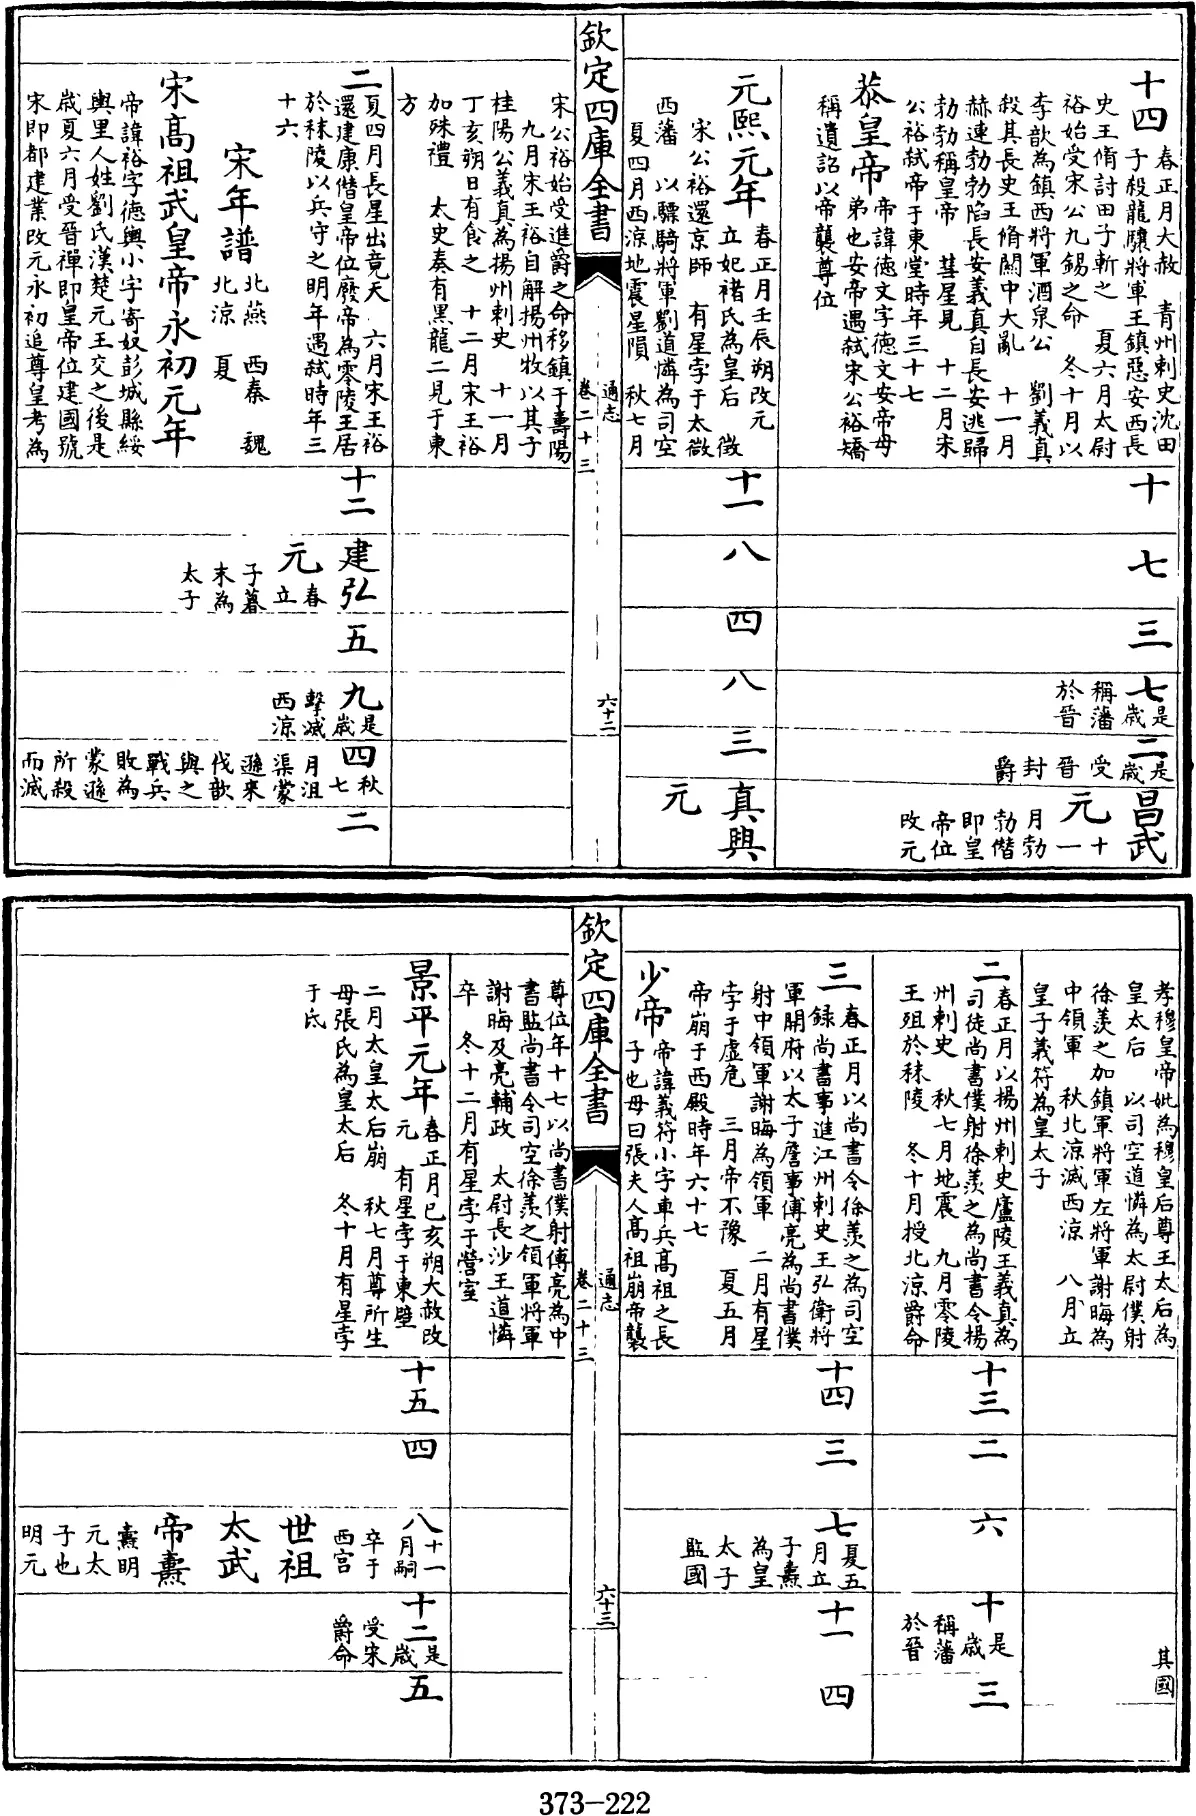 十四
春正月大赦　青州刺史沈田
子殺龍驤將軍王鎮惡安西長
史王脩討田子斬之　夏六月太尉
裕始受宋公九錫之命　冬十月以
李歆為鎮西將軍酒泉公　劉義真
殺其長史王脩關中大亂　十一月
赫連勃勃陷長安義真自長安逃歸
勃勃稱皇帝　彗星見　十二月宋
公裕弒帝于東堂時年三十七
恭皇帝
帝諱德文字德文安帝母
弟也安帝遇弒宋公裕矯
稱遺詔以帝襲尊位
十
七
三
七
是歲
稱藩
於晉
二
是歲
受晉
封爵
昌武
元
十一
月勃
勃僭
即皇
帝位
改元
元熙元年
春正月壬辰朔改元
立妃褚氏為皇后　徵
宋公裕還京師　有星孛于太微
西藩　以驃騎將軍劉道憐為司空
夏四月西涼地震星隕　秋七月
十一
八
四
八
三
真興
元
欽定四庫全書
通志
卷二十三
六十二
宋公裕始受進爵之命移鎮于壽陽
九月宋王裕自解揚州牧以其子
桂陽公義真為揚州刺史　十一月
丁亥朔日有食之　十二月宋王裕
加殊禮　太史奏有黑龍二見于東
方
二
夏四月長星出竟天　六月宋王裕
還建康僭皇帝位廢帝為零陵王居
於秣陵以兵守之明年遇弒時年三
十六
宋年譜
北燕　西秦　魏
北涼　夏
宋高祖武皇帝永初元年
帝諱裕字德輿小字寄奴彭城縣綏
輿里人姓劉氏漢楚元王交之後是
歲夏六月受晉禪即皇帝位建國號
宋即都建業改元永初追尊皇考為
十二
建弘
元
春立
子暮
末為
太子
五
九
是歲
擊滅
西涼
四
秋七
月沮
渠蒙
遜來
伐歆
與之
戰兵
敗為
蒙遜
所殺
而滅
二
孝穆皇帝妣為穆皇后尊王太后為
皇太后　以司空道憐為太尉僕射
徐羨之加鎮軍將軍左將軍謝晦為
中領軍　秋北涼滅西涼　八月立
皇子義符為皇太子
其國
二
春正月以揚州刺史廬陵王義真為
司徒尚書僕射徐羨之為尚書令揚
州刺史　秋七月地震　九月零陵
王殂於秣陵　冬十月授北涼爵命
十三
二
六
十
是歲
稱藩
於晉
三
三
春正月以尚書令徐羨之為司空
録尚書事進江州刺史王弘衛將
軍開府以太子詹事傅亮為尚書僕
射中領軍謝晦為領軍　二月有星
孛于虛危　三月帝不豫　夏五月
帝崩于西殿時年六十七
少帝
帝諱義符小字車兵高祖之長
子也母曰張夫人高祖崩帝襲
十四
三
七
夏五
月立
子燾
為皇
太子
監國
十一
四
欽定四庫全書
通志
卷二十三
六十三
尊位年十七以尚書僕射傅亮為中
書監尚書令司空徐羨之領軍將軍
謝晦及亮輔政　太尉長沙王道憐
卒　冬十二月有星孛于營室
景平元年
春正月己亥朔大赦改
元　有星孛于東壁
二月太皇太后崩　秋七月尊所生
母張氏為皇太后　冬十月有星孛
于氐
十五
四
八
十一
月嗣
卒于
西宮
世祖
太武
帝燾
燾明
元太
子也
明元
十二
是歲
受宋
爵命
五
373-222